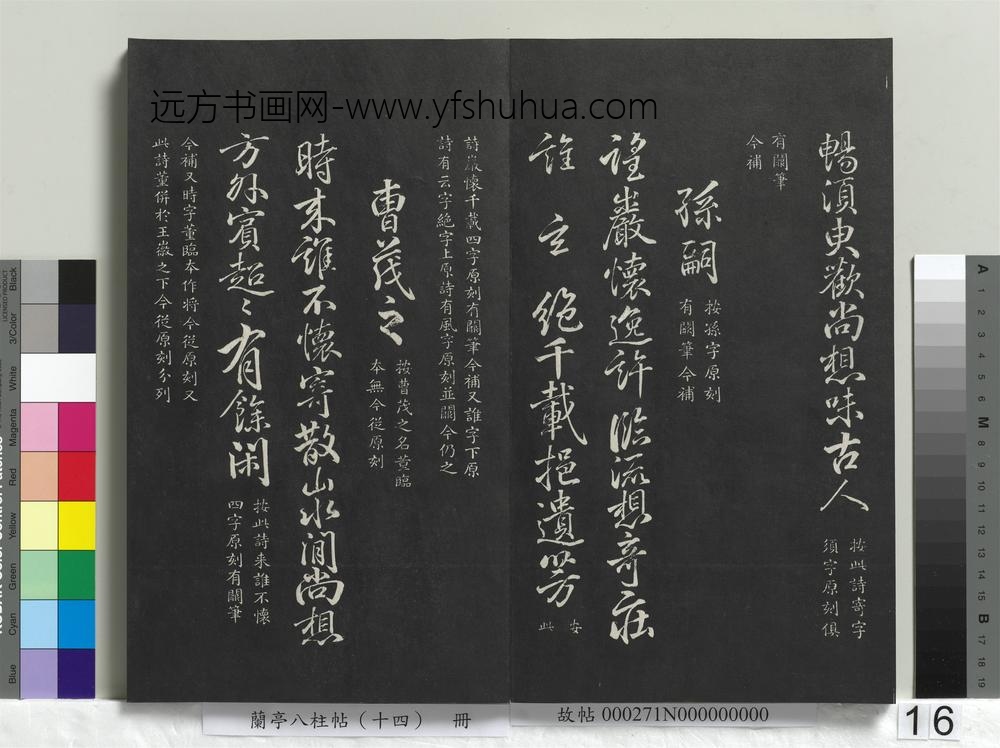 远方书画网-www.yfshuhua.com
暢須臾歡尚想味古人
按此詩寄字
須字原刻俱
有闕筆
今補
孫嗣
按孫字原刻
有闕筆今補
望巖懷逸許臨流想奇莊
誰 云 絶千載挹遺芳
按
此
詩巖懷千載四字原刻有闕筆今補又誰字下原
詩有云字絶字上原詩有風字原刻並闕今仍之
曹茂之
按曹茂之名董臨
本無今從原刻
時來誰不懷寄散山水間尚想
方外賓超〻有餘閑
按此詩來誰不懷
四字原刻有闕筆
今補又時字董臨本作將今從原刻又
此詩董併於王徽之下今從原刻分列
蘭亭八柱帖(十四) 冊
故帖 000271N000000000
16
Black
3/Color
White
Magenta
Red
Yellow
Green
Cyan
Blue
LICENSED PRODUCT
A 1 2 3 4 5 6 M 8 9 10 11 12 13 14 15 B 17 18 19